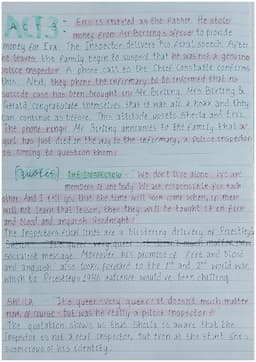 ACT 3: Eric is revealed as the father. He stole
money from Mr Birling's office to provide
money for Eva. The Inspector delivers his final speech. After
he leaves, the family begin to suspect that he was not a genuine
police inspector. A phone call to the Chief Constable confirms
this. Next, they phone the infirmary to be informed that no
suicide case has been brought in. Mr Birling, Mrs Birling &
Gerald congratulate themselves that it was all a hoax and they
can continue as before. This attitude upsets Sheila and Eric.
The phone rings. Mr Birling announces to the family that a
girl has just died on the way to the infirmary, a police inspector
is coming to question them.
Quotes THE INSPECTOR - "We don't live alone. We are
members of one body. We are responsible for each
other. And I tell you that the time will soon come when, if men
will not learn that lesson, then they will be taught it in fire
and blood and anguish. Goodnight."
The Inspectors final lines are a blistering delivery of Priestley's
socialist message. Moreover his promise of fire and blood
and anguish also looks forward to the 1st and 2nd world war,
which to Priestley's 1946 audience would be been chilling.
SHEILA It's queer - very queer - it doesn't much matter
now, of course - but was he really a police inspector?
The quotation shows us that Sheila is aware that the
Inspector is not a real Inspector, but even at the start she's
suspicious of his identity.